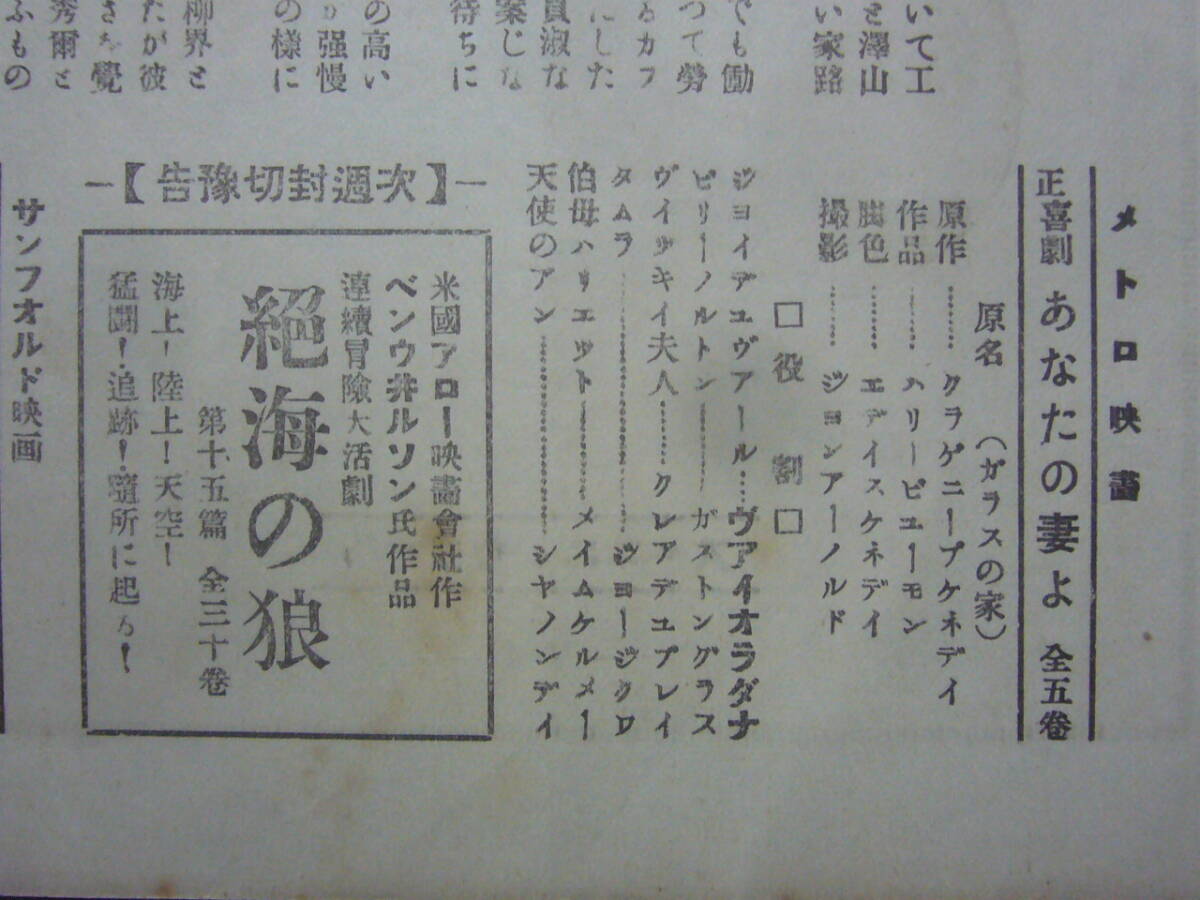 いて工
と澤山
い家路
でも働
つて勞
るカフ
にした
員淑な
案じな
待ちに
の高い
が强慢
の様に
柳界と
たが彼
さを覺
秀爾と
ふもの
メトロ映畵
正喜劇 あなたの妻よ 全五卷
原名 (ガラスの家)
原作……クラゲニープケネデイ
作品……ハリービユーモン
脚色……エデイスケネデイ
撮影……ジョンアーノルド
□役割□
ジヨイデユヴアール…ヴアイオラダナ
ビリーノルトン……ガストングラス
ヴイツキイ夫人……クレアデユプレイ
タムラ……ジヨージクワ
伯母ハリエツト……メイムケルメー
天使のアン……シヤノンデイ
―【次週封切豫告】―
米國アロー映畵會社作
ベンウ井ルソン氏作品
連續冒險大活劇
絕海の狼
第十五篇 全三十卷
海上!陸上!天空!
猛鬪!追跡!隨所に起る!
サンフオルド映画